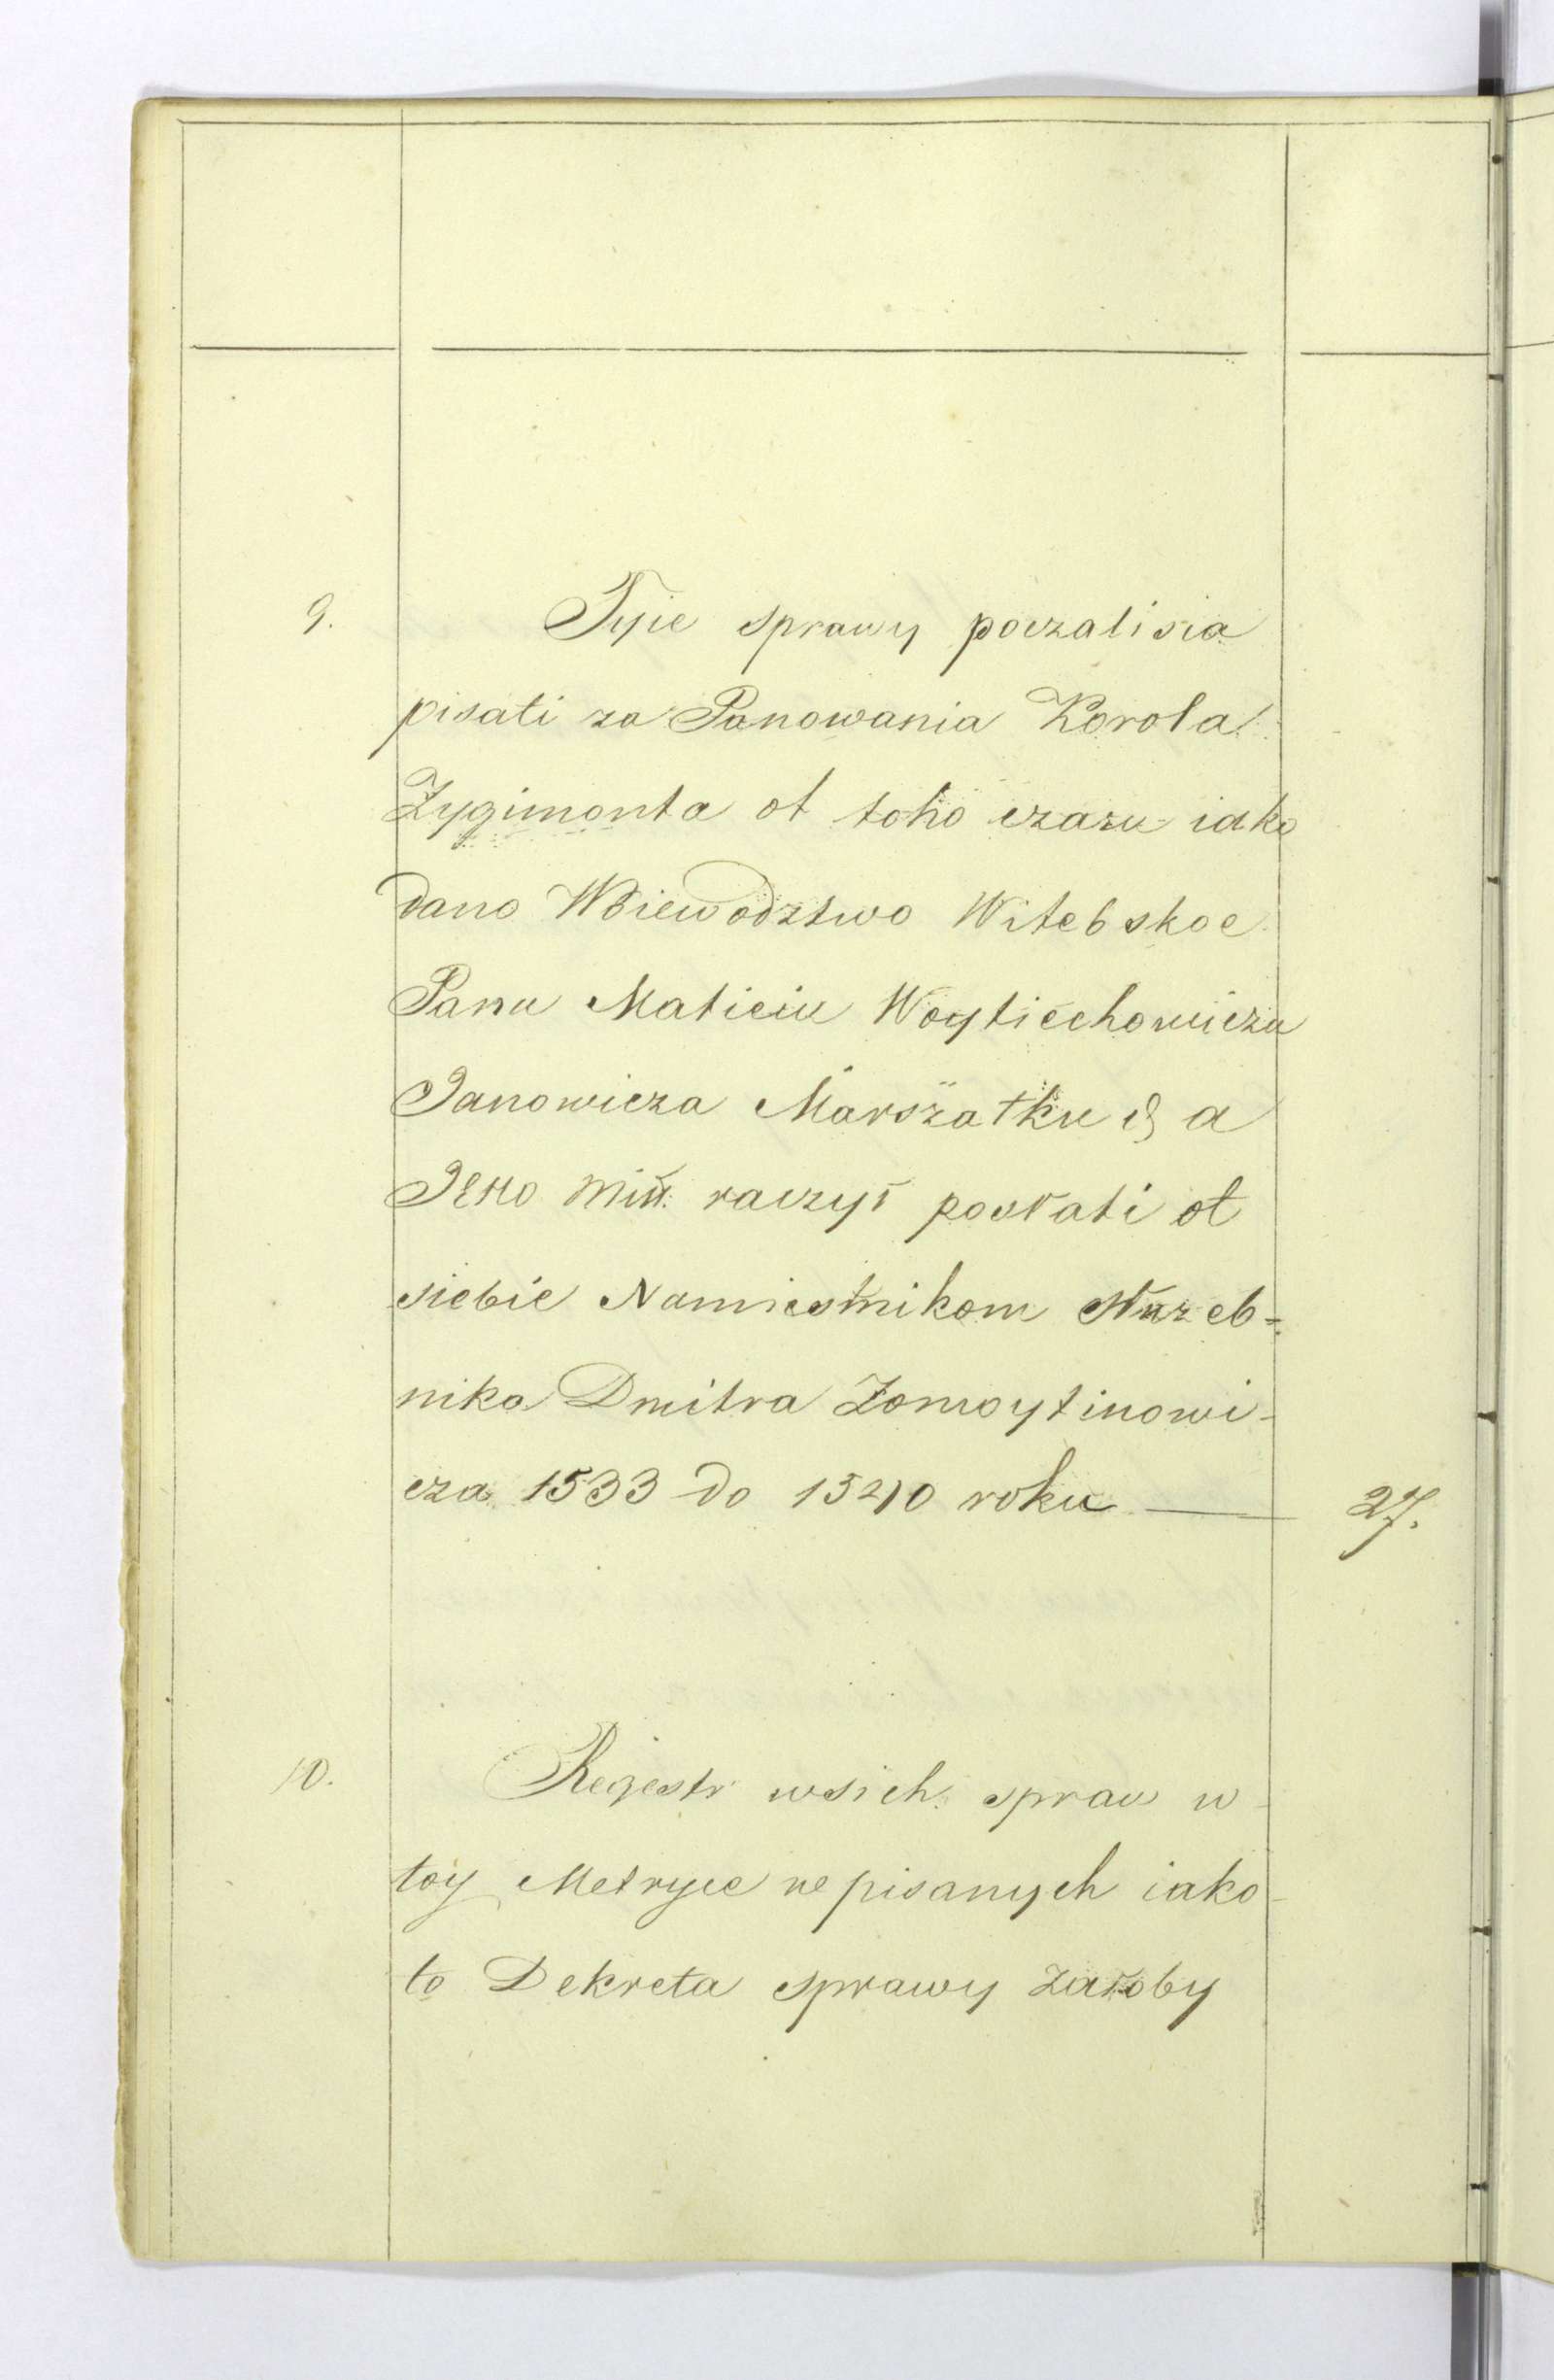 9. Tyie sprawy poczalisia
pisati za Panowania Korola
Zygimonta ot toho czasu iako
dano Woiewodztwo Witebskoe
Panu Matieiu Woytiechowiczu
Janowicza Marszałku & a
JEHo raczył posłati ot
siebie Namiestnikom Służeb=
nika Dmitra Zomoytinowi-
cza 1533 do 1540 roku — 27.
10. Regestr wsich spraw w
toy Metryce wpisanych iako
to Dekreta sprawy żałoby